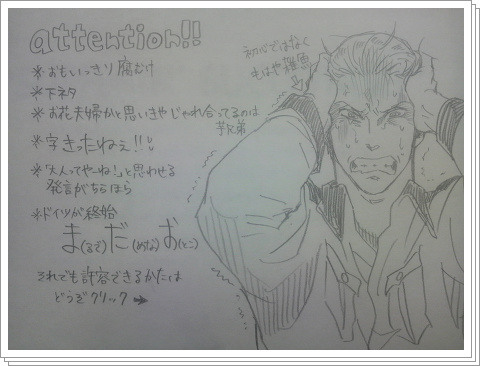 attention!!
※おもいっきり腐むけ
※下ネタ
※お花夫婦かと思いきやじゃれ合ってるのは
芋兄弟
※字きったねぇ!!
※「大人ってやーね!」と思わせる
発言がちらほら
※ドイツが終始
ま(るで)だ(めな)お(とこ)
それでも許容できるかたは
どうぞクリック➡
初心ではなく
もはや